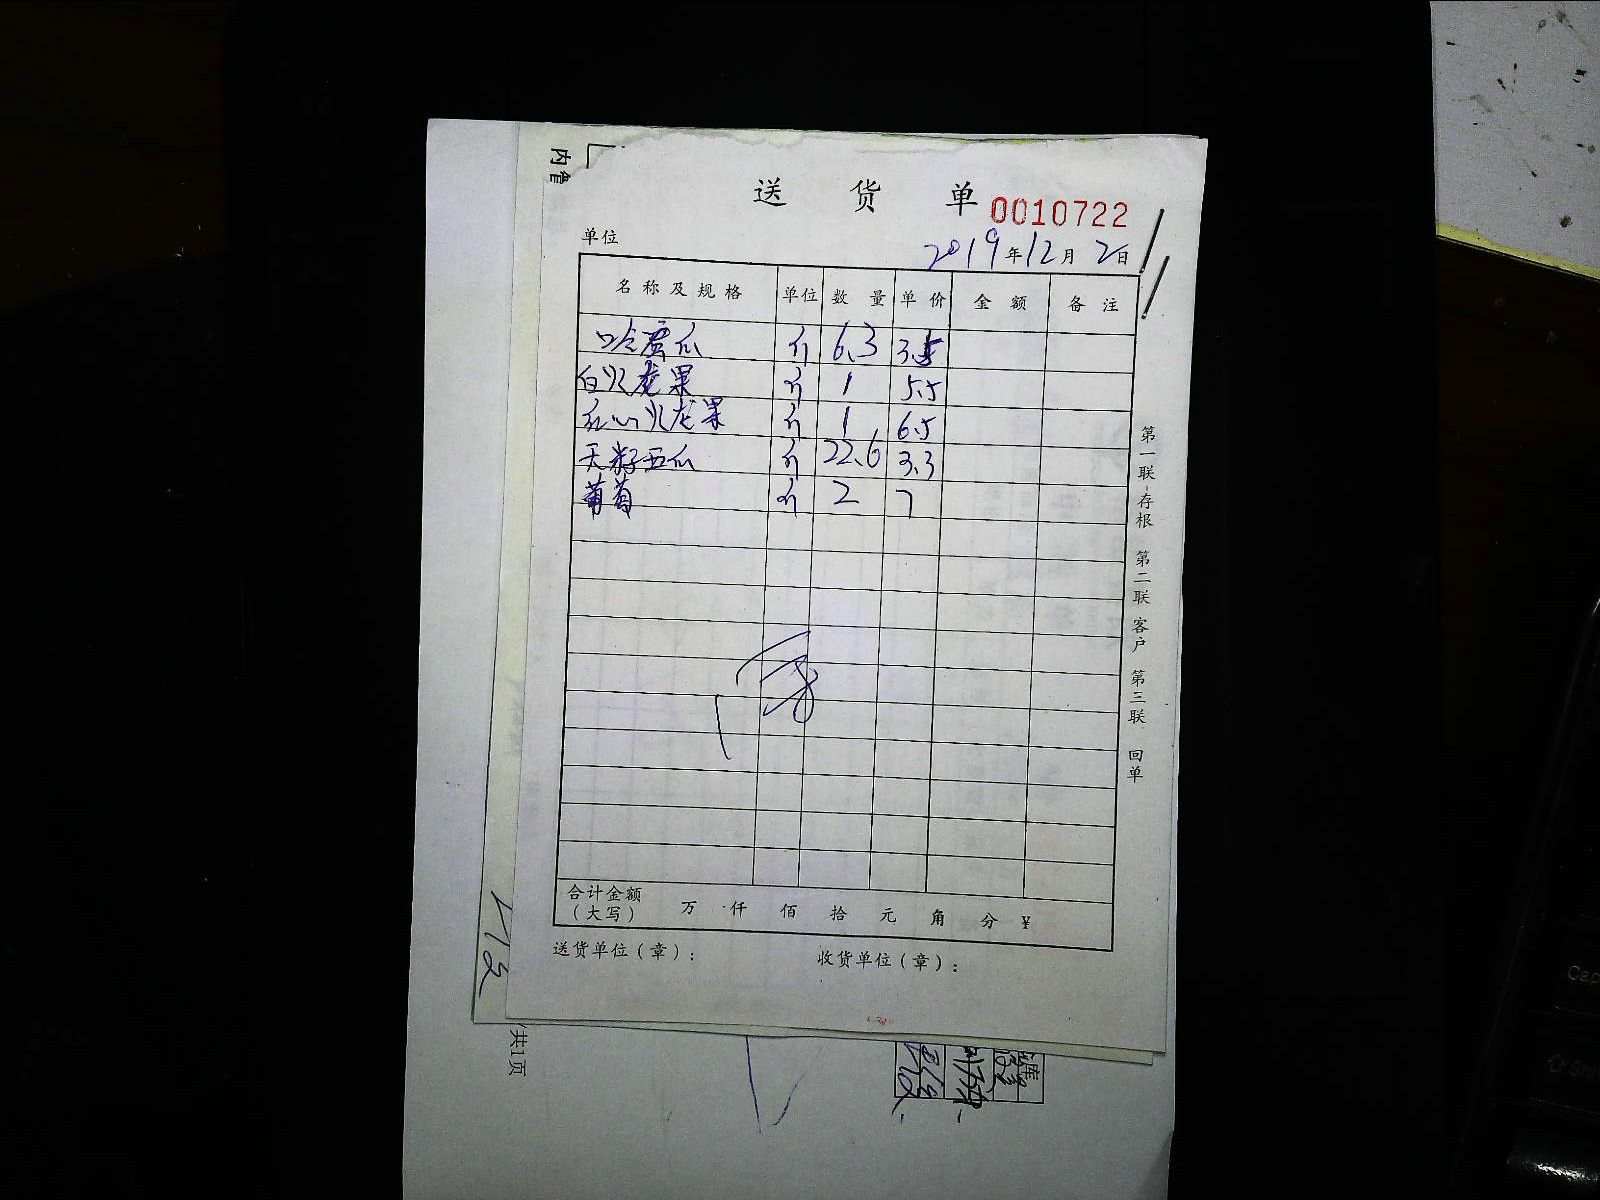 内管
送 货 单 0010722
单位 2019年12月2日
名称及规格 单位 数量 单价 金额 备注
哈蜜瓜 斤 6.3 3.5
白火龙果 斤 1 5.5
红心火龙果 斤 1 6.5
无籽西瓜 斤 22.6 3.3
葡萄 斤 2 7
合计金额
(大写) 万 仟 佰 拾 元 角 分 ¥
送货单位(章): 收货单位(章):
第一联 存根 第二联 客户 第三联 回单
共1页
Cap